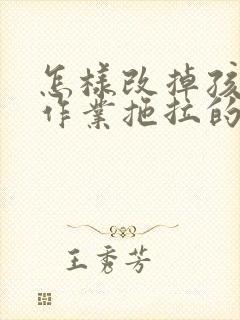 怎樣改掉孩
作業拖拉的
王秀芳